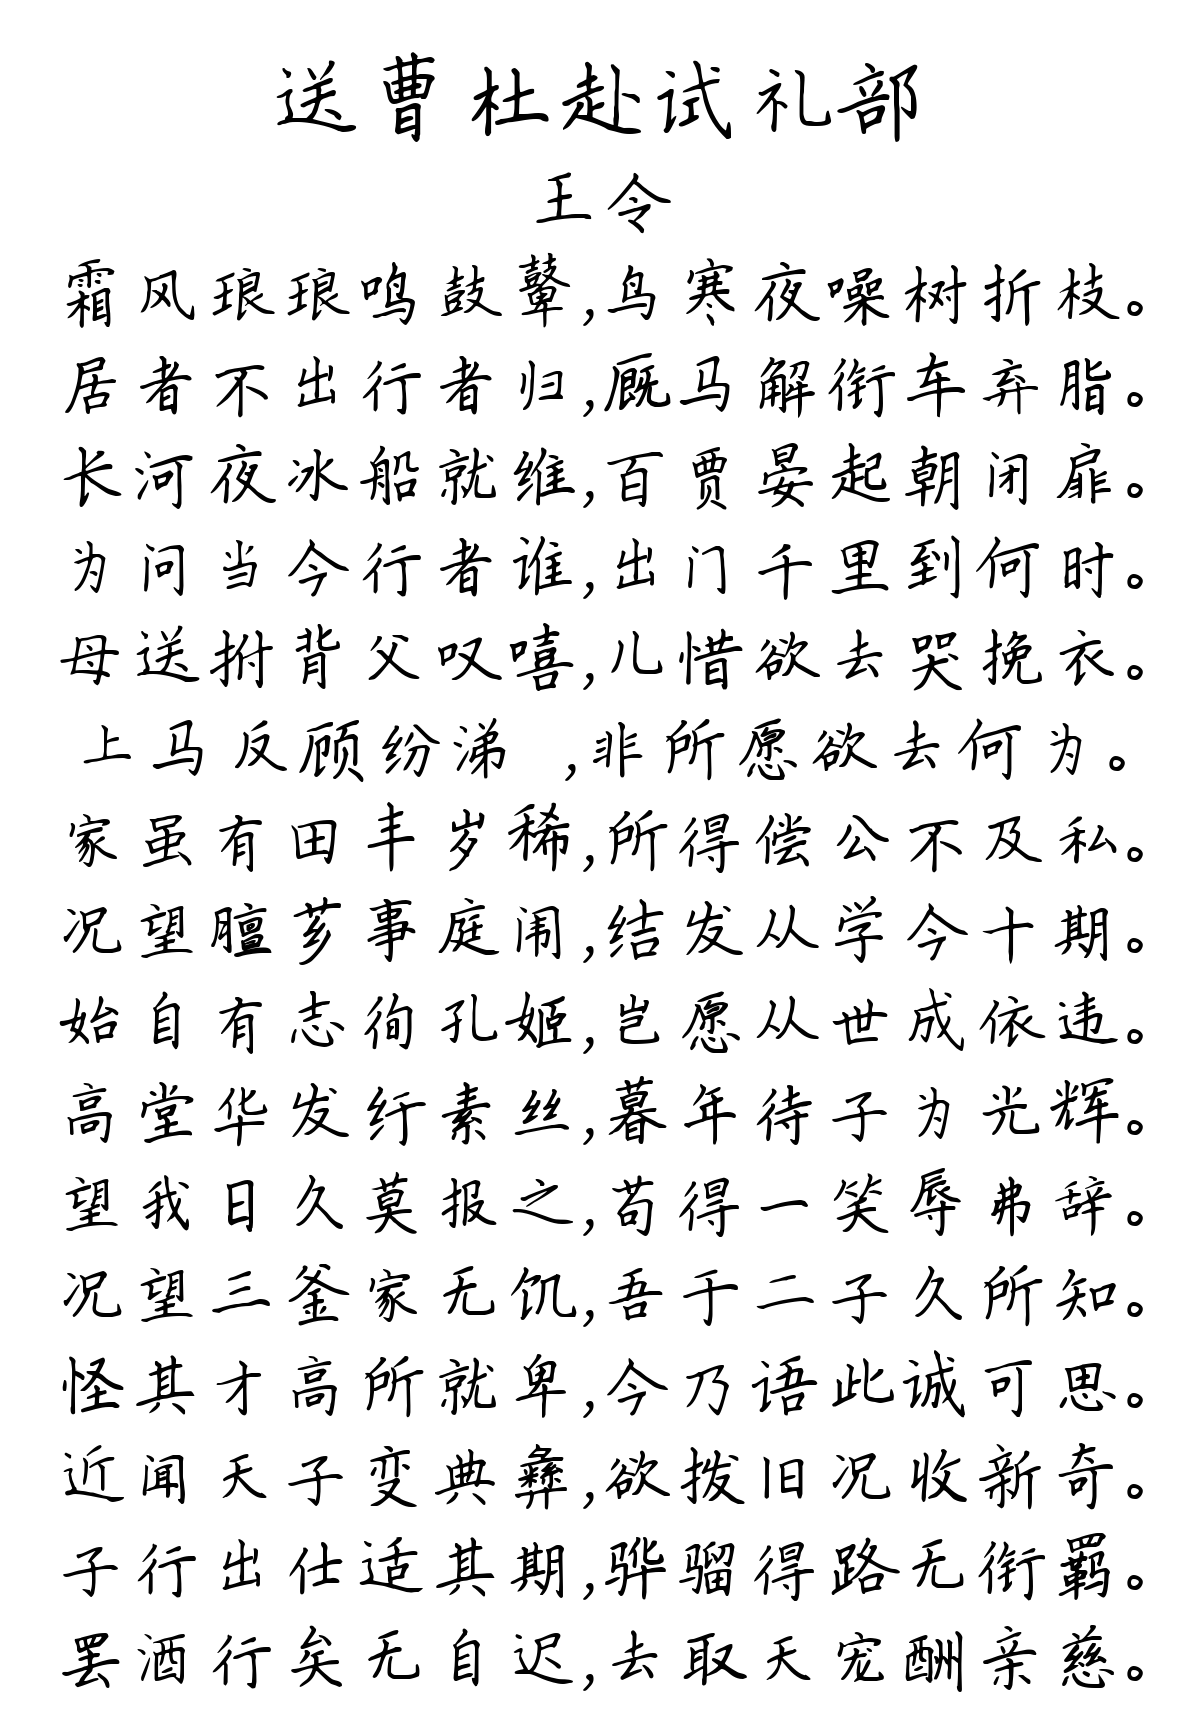 送曹杜赴试礼部
王令
霜风琅琅鸣鼓鼙,鸟寒夜噪树折枝。
居者不出行者归,厩马解衔车弃脂。
长河夜冰船就维,百贾晏起朝闭扉。
为问当今行者谁,出门千里到何时。
母送拊背父叹嘻,儿惜欲去哭挽衣。
上马反顾纷涕 ,非所愿欲去何为。
家虽有田丰岁稀,所得偿公不及私。
况望膻芗事庭闱,结发从学今十期。
始自有志徇孔姬,岂愿从世成依违。
高堂华发纡素丝,暮年待子为光辉。
望我日久莫报之,苟得一笑辱弗辞。
况望三釜家无饥,吾于二子久所知。
怪其才高所就卑,今乃语此诚可思。
近闻天子变典彝,欲拨旧况收新奇。
子行出仕适其期,骅骝得路无衔羁。
罢酒行矣无自迟,去取天宠酬亲慈。